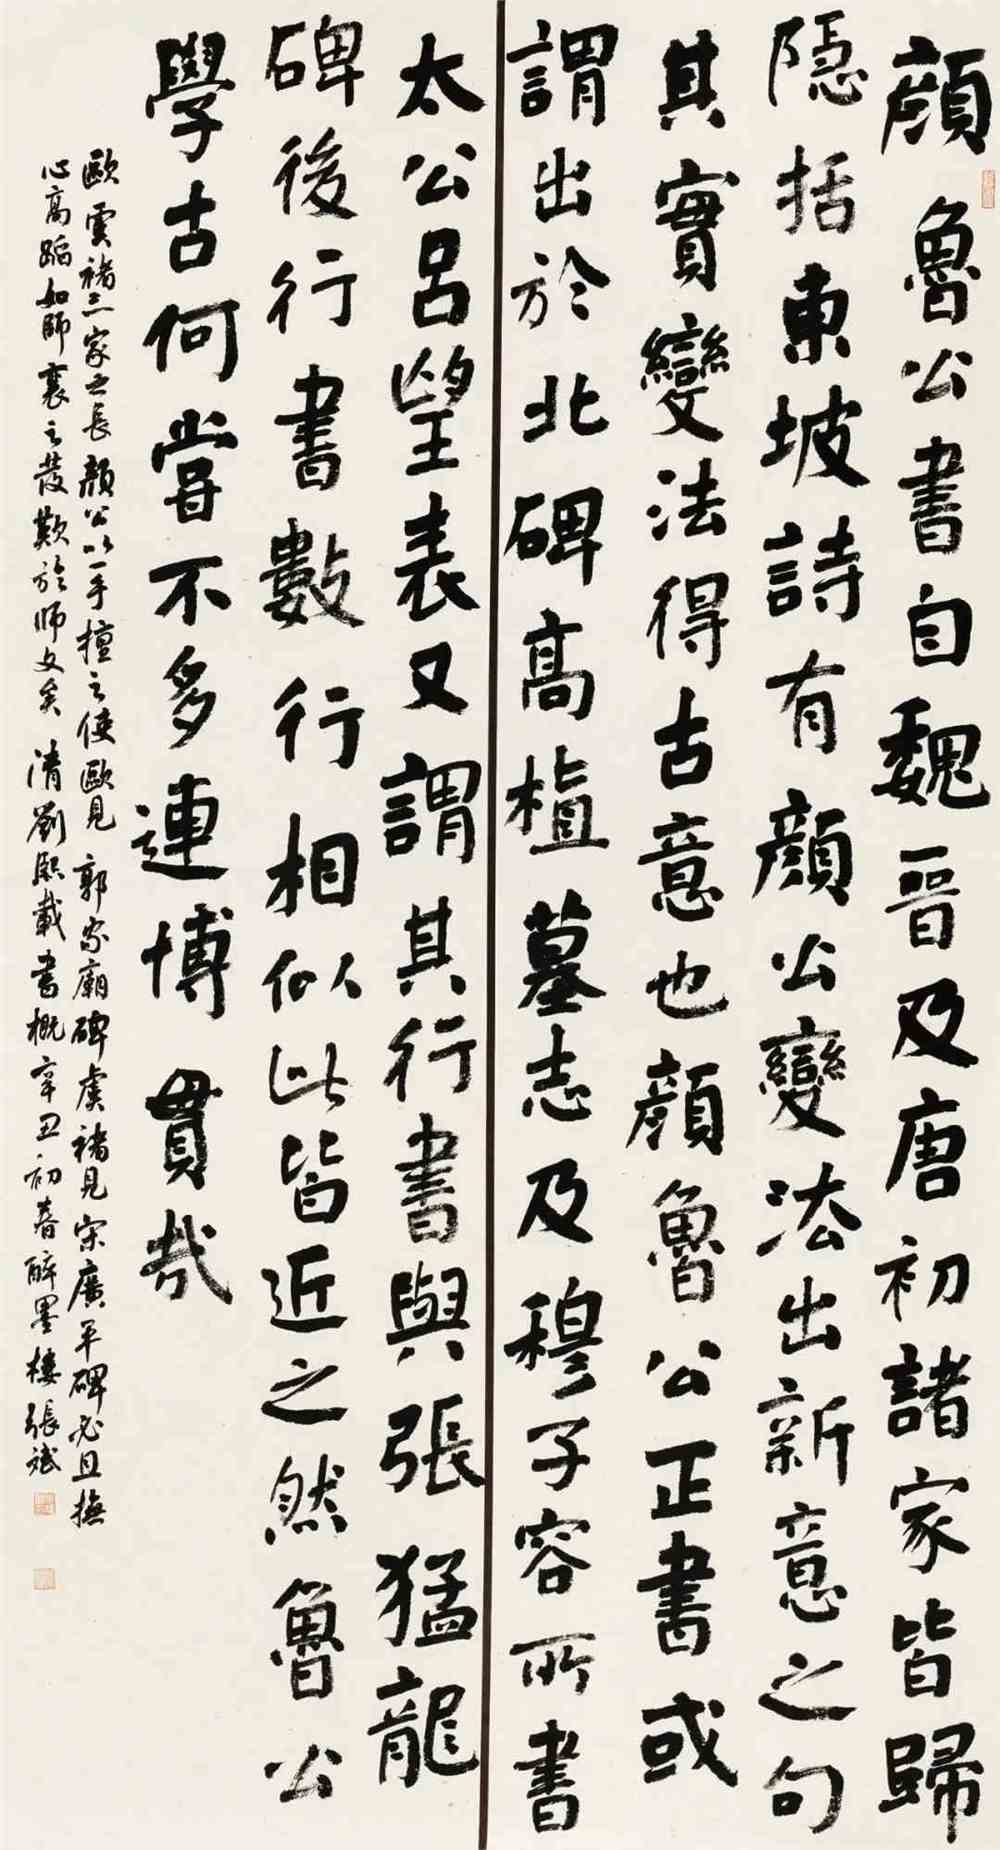 顔魯公書自魏晉及唐初諸家皆歸
隱括東坡詩有顔公變法出新意之句
其實變法得古意也顔魯公正書或
謂出於北碑高植墓志及穆子容所書
太公呂望表又謂其行書與張猛龍
碑後行書數行相似此皆近之然魯公
學古何嘗不多連博貫哉
歐虞褚三家之長顔公以一手擅之使歐見郭家廟碑虞褚見宋廣平碑必且撫
心高蹈如師襄之發歎於师文矣清劉熙載書概辛丑初春醉墨樓張斌